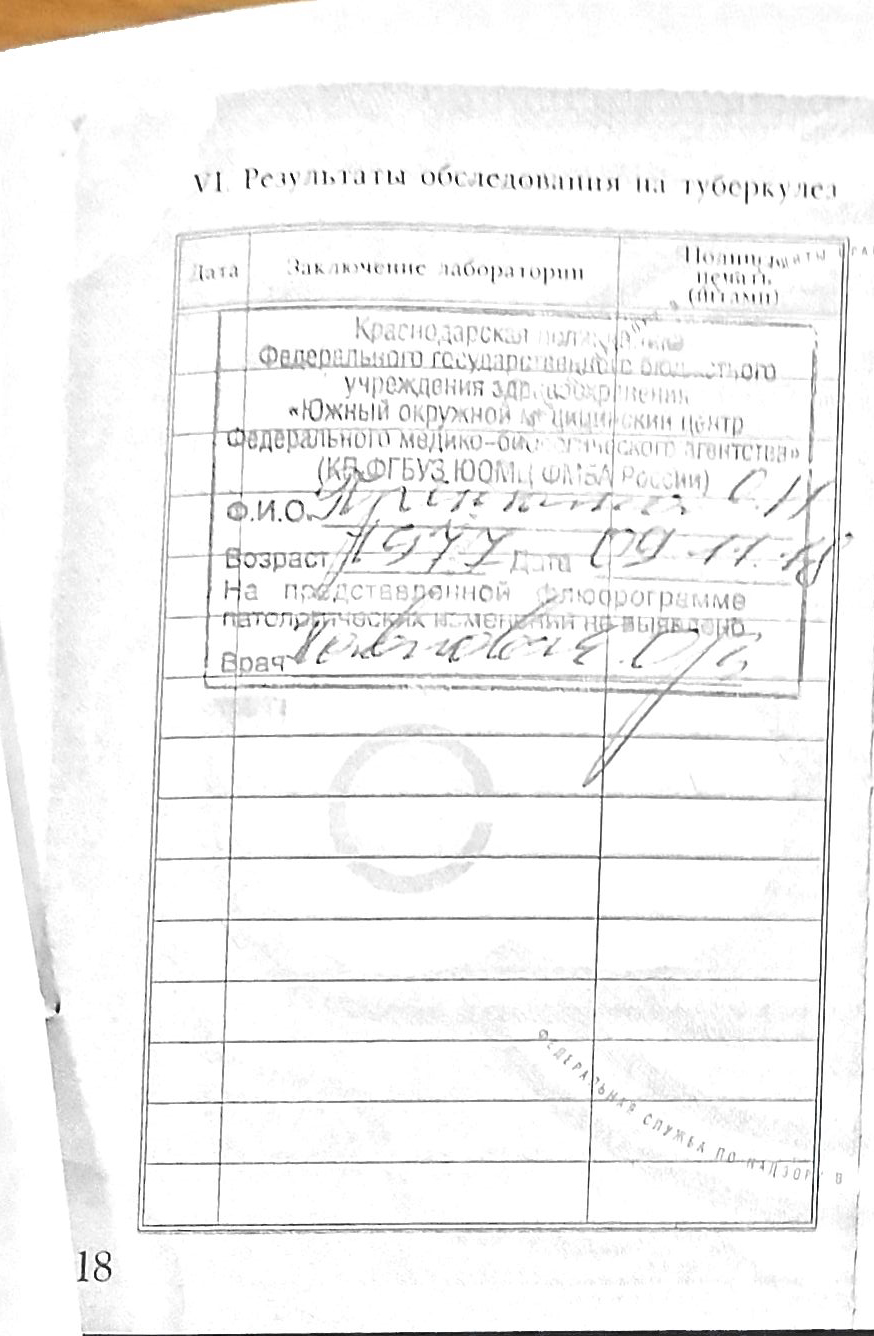 VI. Результаты обследования на туберкулез
Дата
Заключение лаборатории
печать
(штамп)
Краснодарская поликлиника
Федерального государственного бюджетного
учреждения здравоохранения
«Южный окружной медицинский центр
Федерального медико-биологического агентства»
(КП ФГБУЗ ЮОМЦ ФМБА России)
Ф.И.О.
Возраст Дата
На представленной флюорограмме
патологических изменений не выявлено
Врач
ФЕДЕРАЛЬНАЯ СЛУЖБА ПО НАДЗОРУ В
18